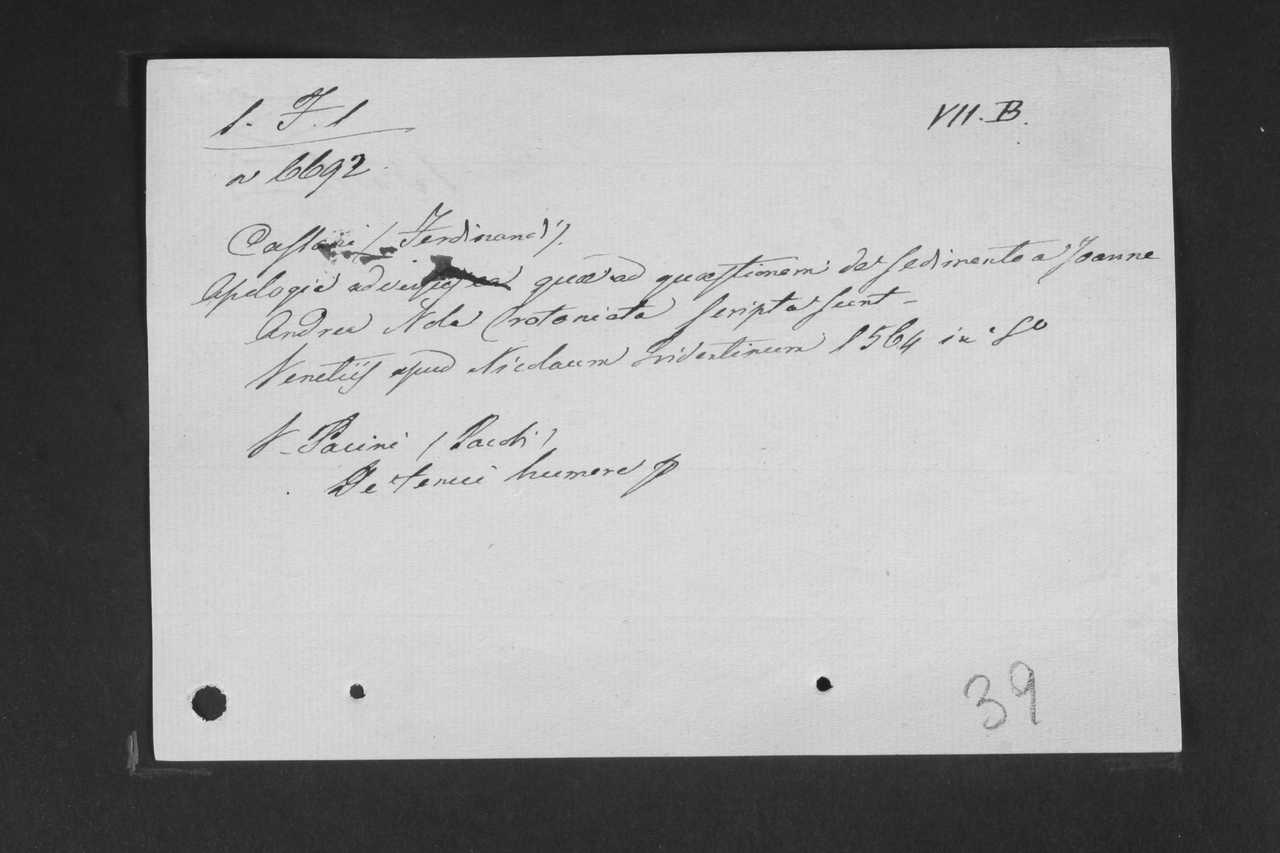 1. F. 1
VII. B.
n 6692
Cassani (Ferdinandi)
Apologia adversus ea quæ ad quæstionem de sedimento a Joanne
Andrea Nola Crotoniata scripta sunt
Venetiis apud Nicolaum Tridentinum 1564 in
V. Pacini (Jacobi)
De tenui humore
39